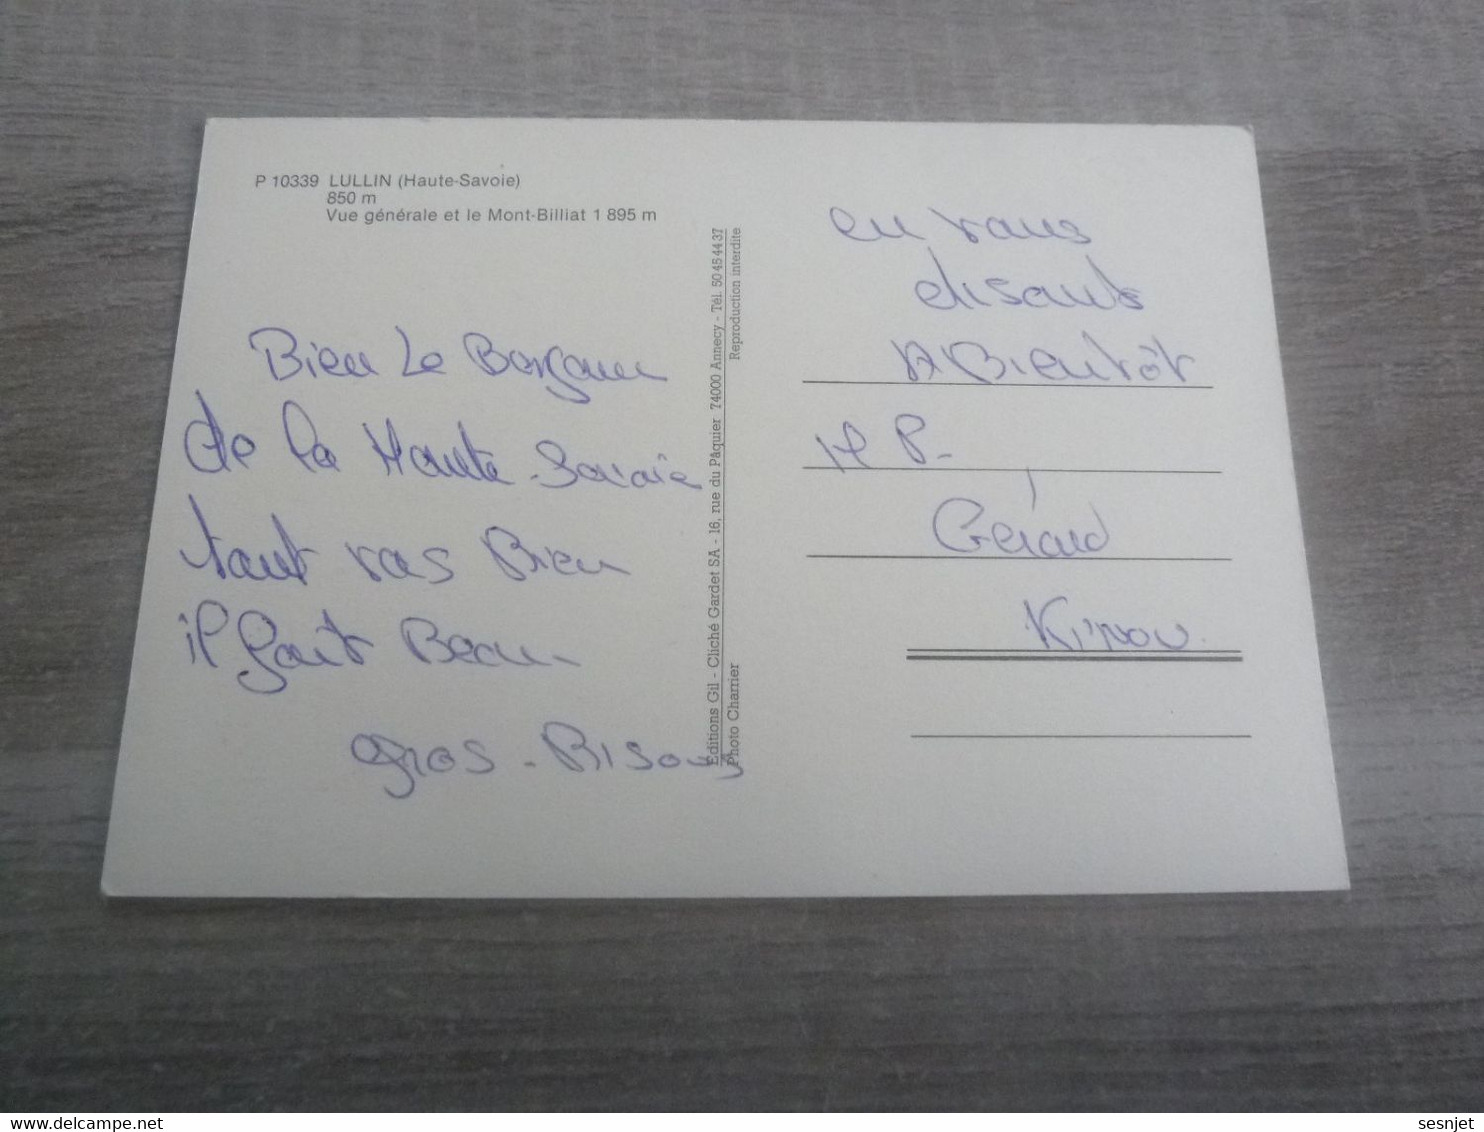 P 10339 LULLIN (Haute-Savoie)
850 m
Vue générale et le Mont-Billiat 1 895 m
Bien Le Bonjour
de la Haute-Savoie
tout vas Bien
il fait Beau
gros-Bisous
Editions Gil - Cliché Gardet SA - 16, rue du Pâquier 74000 Annecy - Tél. 50 45 44 37
Photo Charrier
Reproduction interdite
en vous
disant
A Bientôt
P-
Gérard
Kinou
delcampe.net
sesnjet